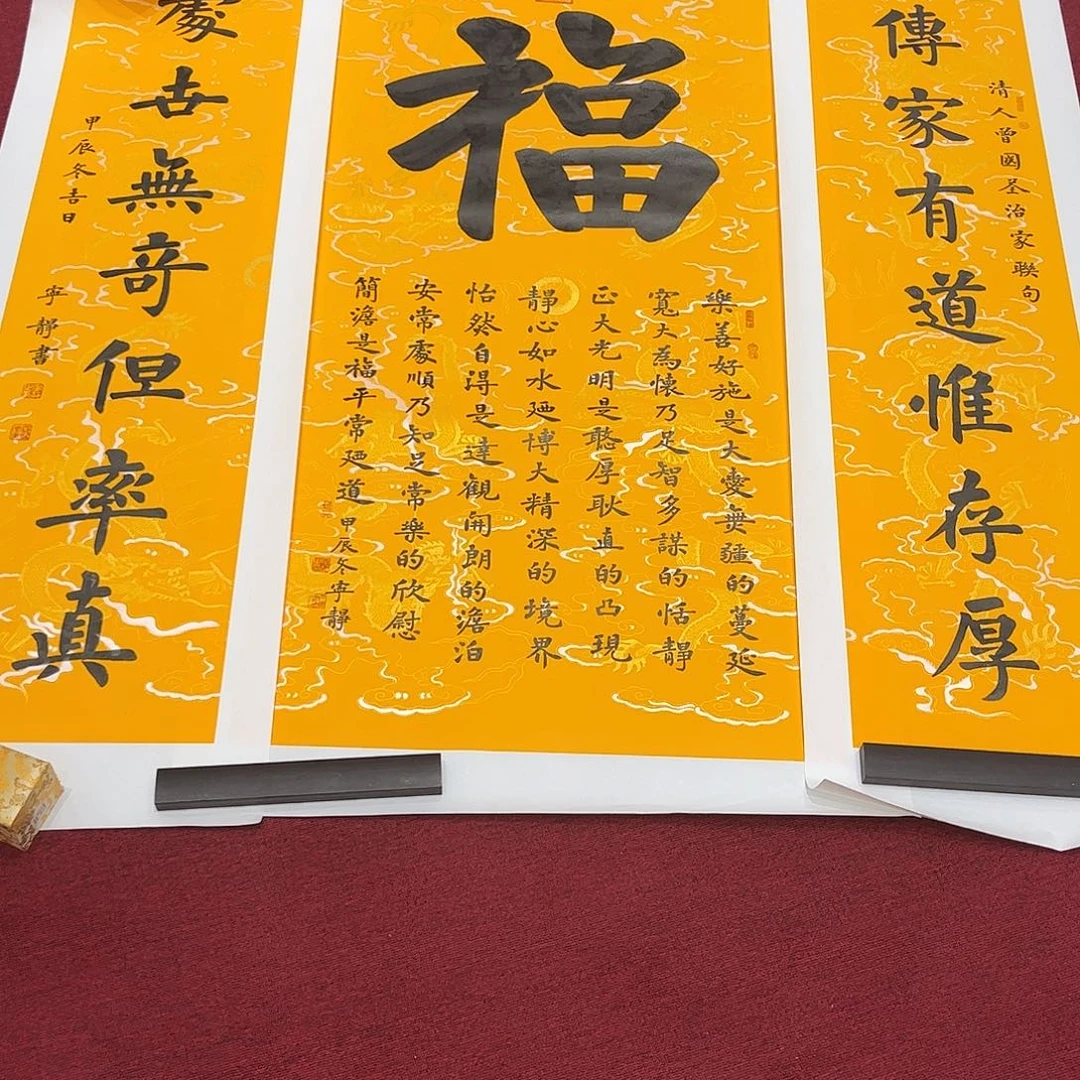 傳家有道惟存厚
清人曾國荃治家聯句
福
樂善好施是大愛無疆的蔓延
寬大為懷乃足智多謀的恬靜
正大光明是憨厚耿直的凸現
靜心如水廼博大精深的境界
怡然自得是達觀開朗的澹泊
安常處順乃知足常樂的欣慰
簡澹是福平常廼道
甲辰冬寧靜
處世無奇但率真
甲辰冬吉日
寧靜書